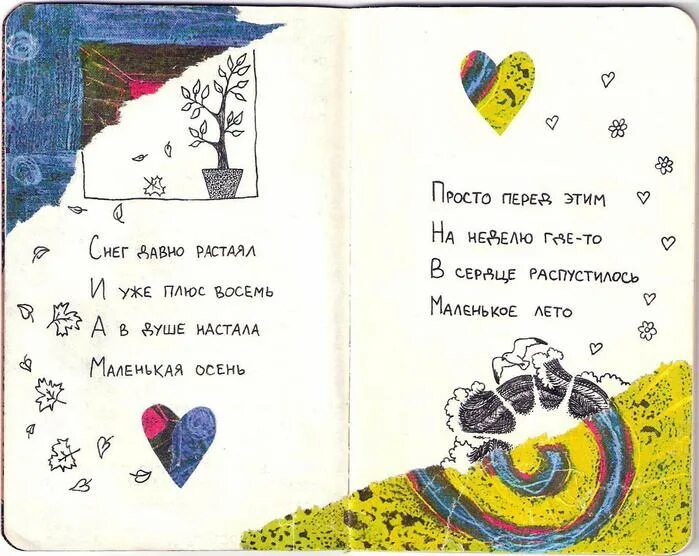 Снег давно растаял
И уже плюс восемь
А в душе настала
Маленькая осень
Просто перед этим
На неделю где-то
В сердце распустилось
Маленькое лето